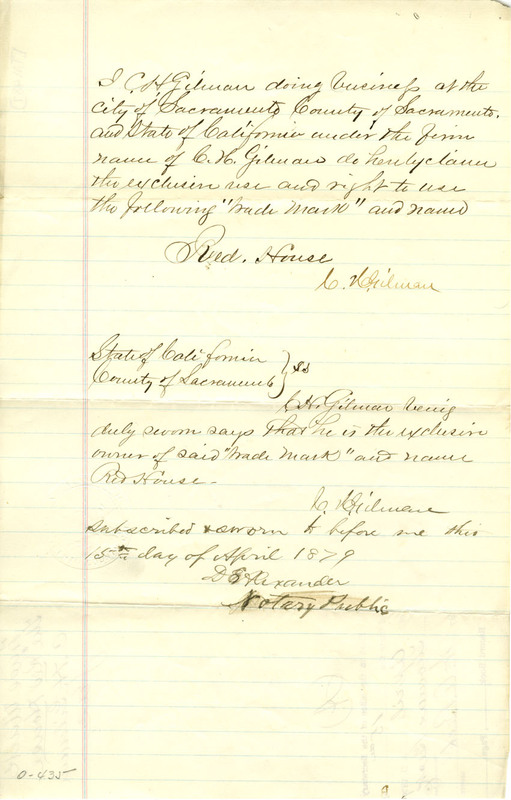 I C. H. Gilman doing business at the
city of Sacramento County of Sacramento.
and State of California under the firm
name of C. H. Gilman do herby claim
the exclusive use and right to use
the following "trade mark" and name
Red. House
C. H. Gilman
State of California
County of Sacramento } SS
C. H. Gilman being
duly sworn says that he is the exclusive
owner of said "trade mark" and name
Red House -
C. H. Gilman
subscribed & sworn to before me this
15th day of April 1879
Alexander
Notary Public
0-435